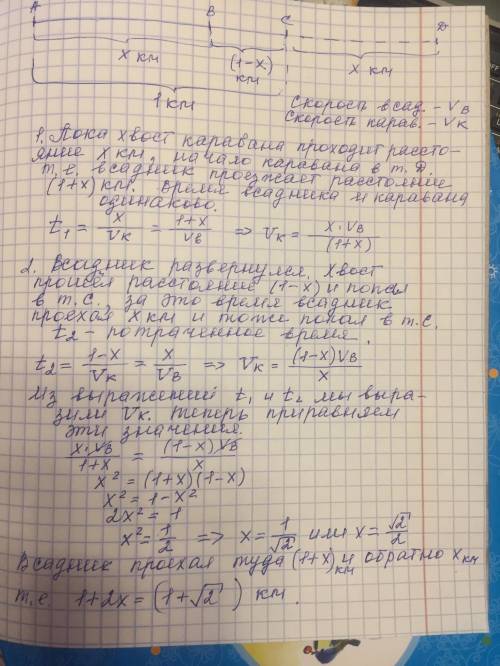 A B C D
x км (1-x) км x км
1 км
Скорость всад. - Vв
Скорость карав. - Vк
1. Пока хвост каравана проходит рассто-
яние x км, начало каравана в т. D.
т.е. всадник проезжает расстояние
(1+x) км. Время всадника и каравана
одинаково.
t₁ = x/Vк = (1+x)/Vв ⇒ Vк = x·Vв/(1+x)
2. Всадник развернулся. Хвост
прошёл расстояние (1-x) и попал
в т. С, за это время всадник
проехал x км и тоже попал в т. С.
t₂ - потраченное время.
t₂ = (1-x)/Vк = x/Vв ⇒ Vк = (1-x)Vв/x
Из выражений t₁ и t₂ мы выра-
зили Vк. теперь приравняем
эти значения.
x·Vв/(1+x) = (1-x)Vв/x
x² = (1+x)(1-x)
x² = 1-x²
2x² = 1
x² = 1/2 ⇒ x = 1/√2 или x = √2/2
Всадник проехал туда (1+x) км и обратно x км
т.е. 1+2x = (1+√2) км.